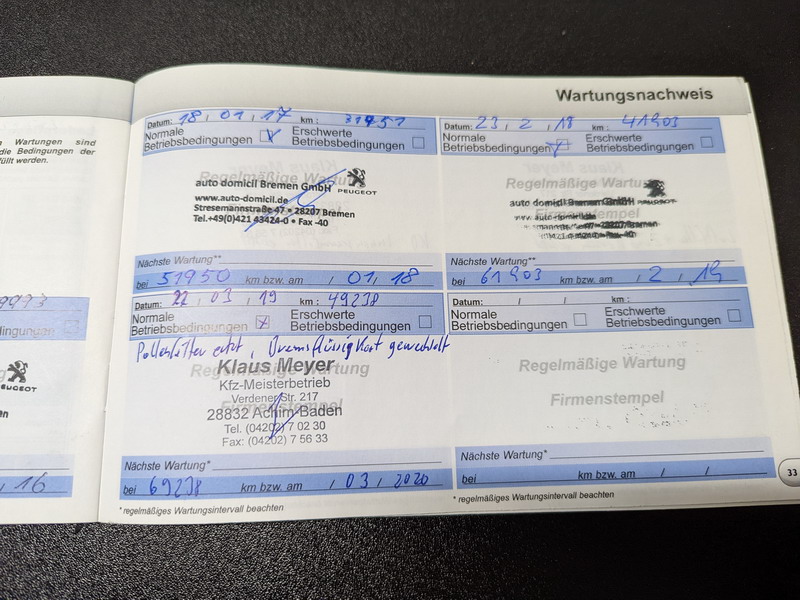 n Wartungen sind
die Bedingungen der
füllt werden.
dingungen
PEUGEOT
, 16
Wartungsnachweis
Datum: 18, 01, 17 km: 31951
Normale Betriebsbedingungen X Erschwerte Betriebsbedingungen
Regelmäßige Wartung
auto domicil Bremen GmbH
PEUGEOT
www.auto-domicil.de
Stresemannstraße 47 • 28207 Bremen
Tel.+49(0)421 43424-0 • Fax -40
Nächste Wartung**
bei 51950 km bzw. am / 01, 18
Datum: 23, 2, 18 km: 41903
Normale Betriebsbedingungen Erschwerte Betriebsbedingungen
Klaus Meyer
Regelmäßige Wartung
auto domicil Bremen GmbH
PEUGEOT
Firmenstempel
28207 Bremen
Nächste Wartung**
bei 61903 km bzw. am / 2, 19
Datum: 22, 03, 19 km: 49238
Normale Betriebsbedingungen X Erschwerte Betriebsbedingungen
Pollenfilter , Bremsflüssigkeit gewechselt
Regelmäßige Wartung
Klaus Meyer
Kfz-Meisterbetrieb
Verdener Str. 217
Firmenstempel
28832 Achim-Baden
Tel. (04202) 7 02 30
Fax: (04202) 7 56 33
Nächste Wartung*
bei 69238 km bzw. am / 03, 2020
* regelmäßiges Wartungsintervall beachten
Datum: / / km:
Normale Betriebsbedingungen Erschwerte Betriebsbedingungen
Regelmäßige Wartung
Firmenstempel
Nächste Wartung*
bei km bzw. am / /
* regelmäßiges Wartungsintervall beachten
33